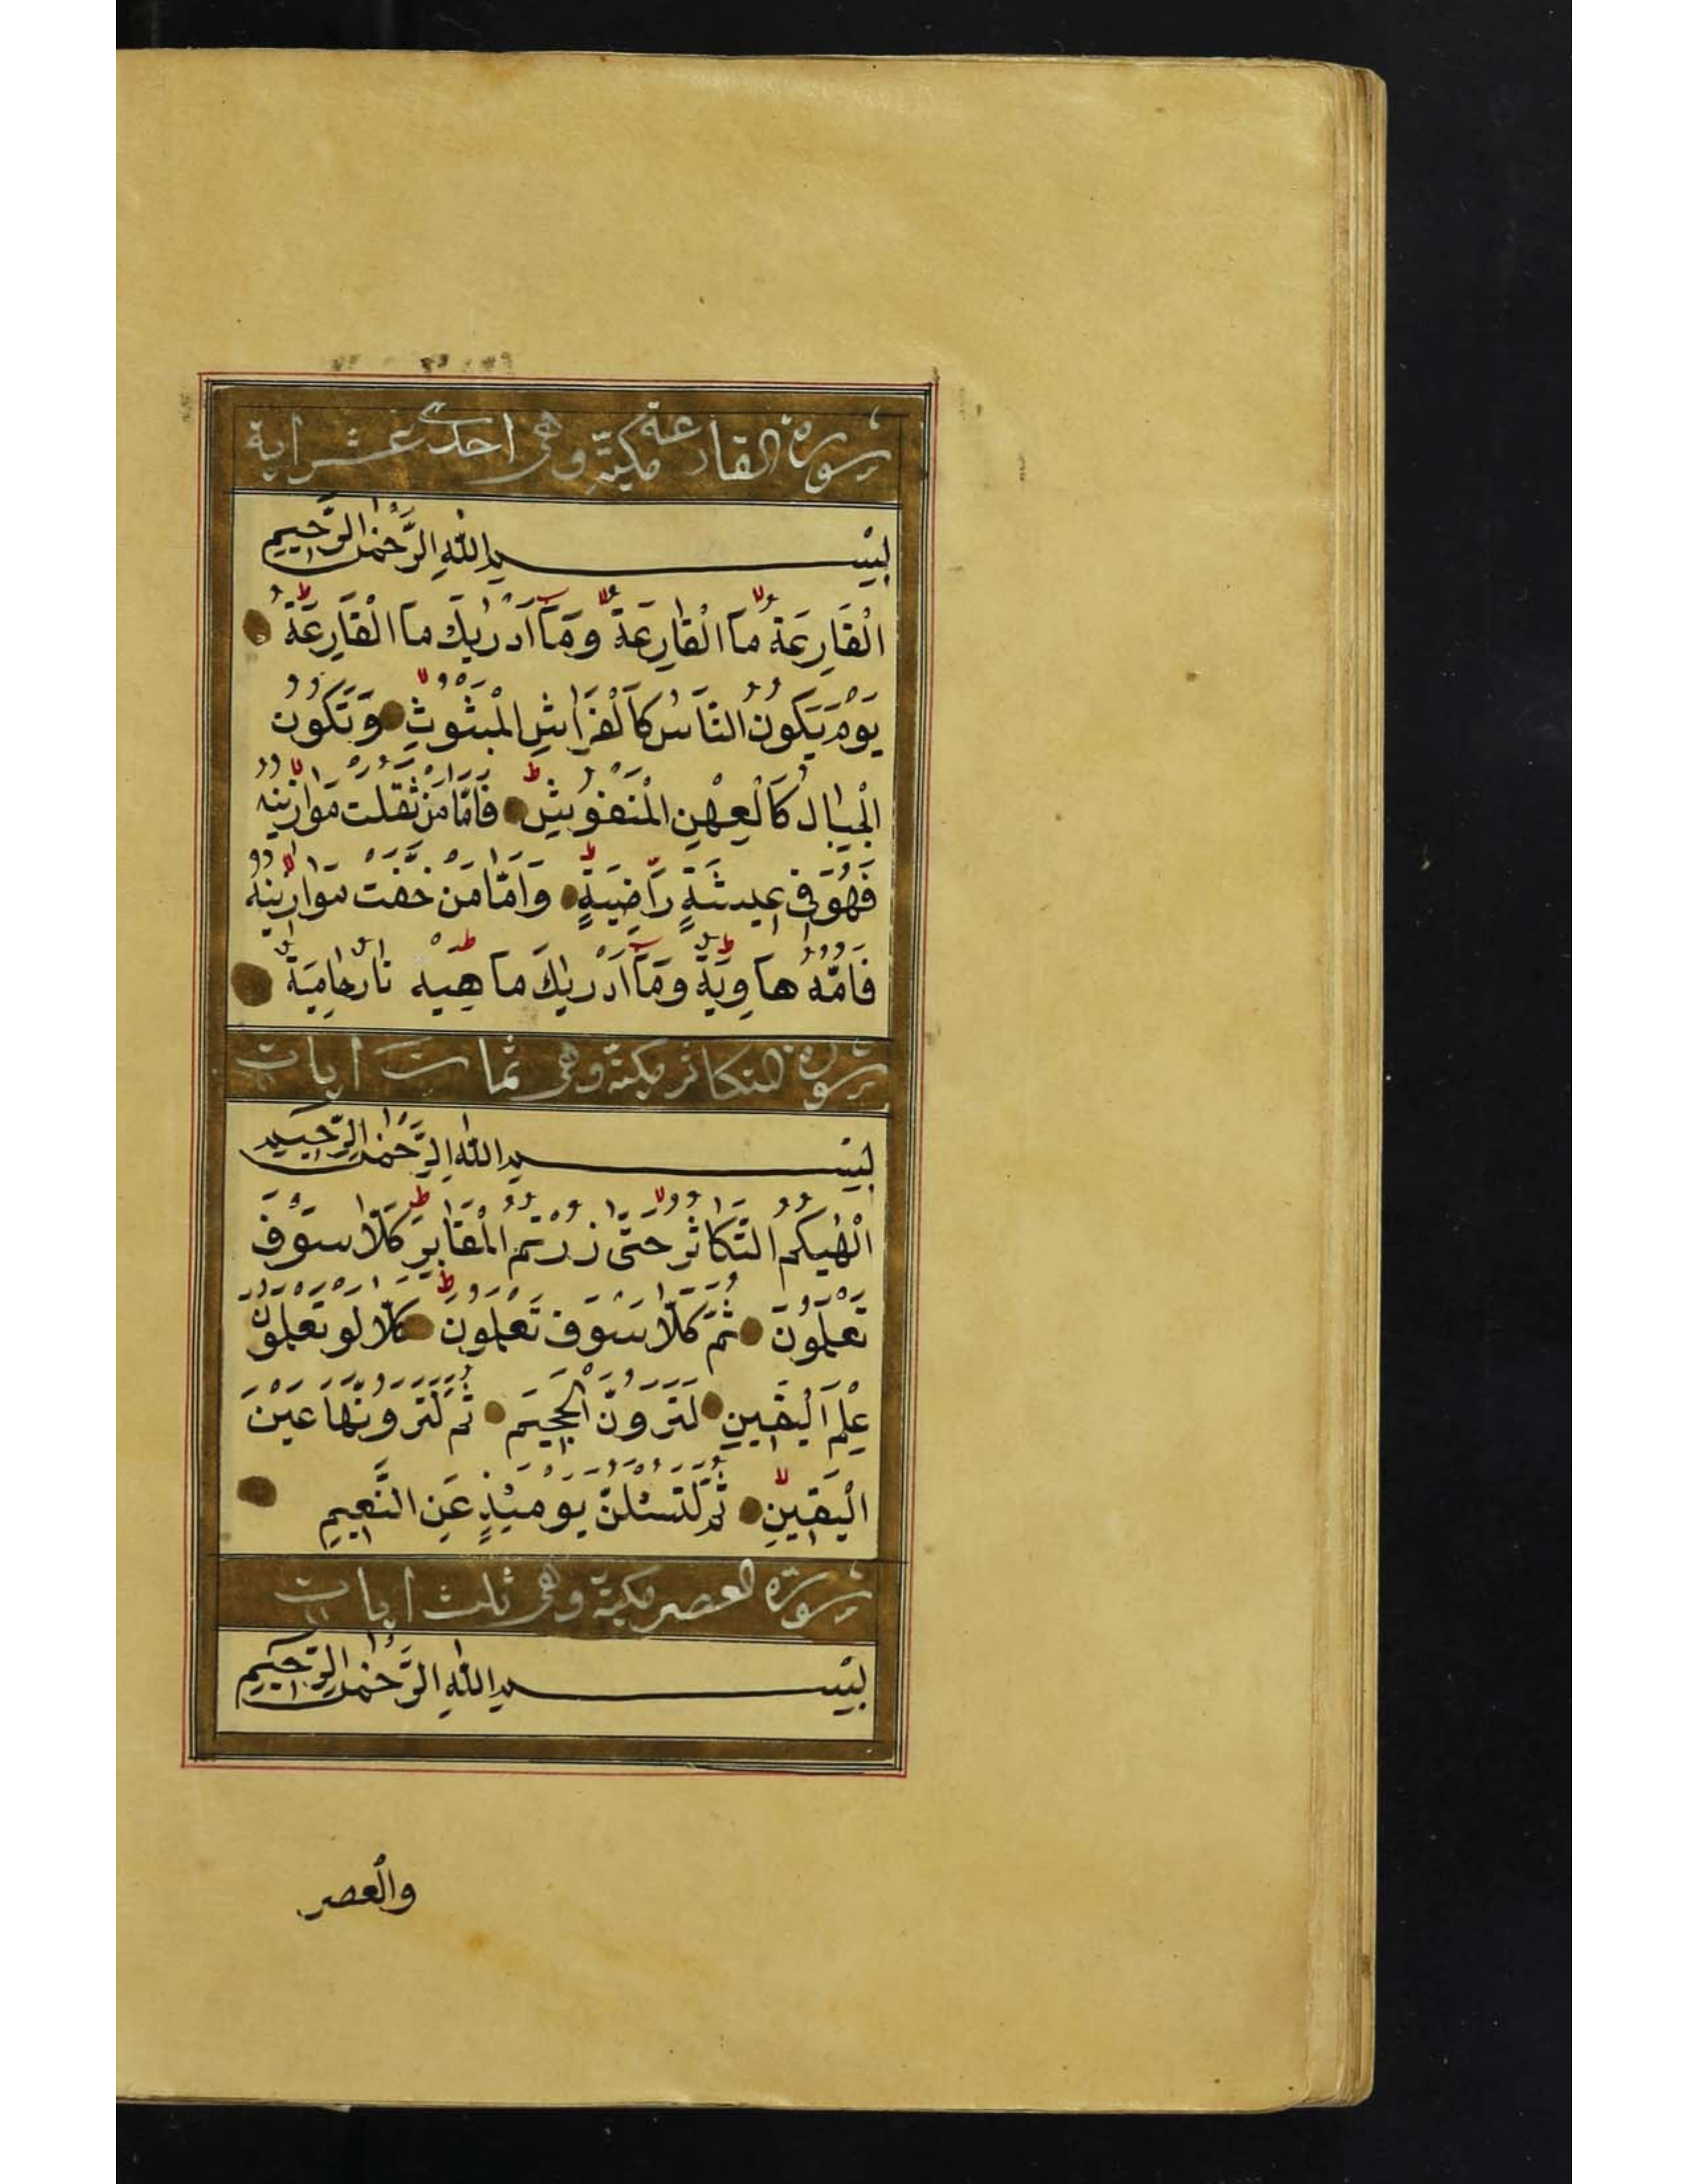 سورة القارعة مكية وهى احدى عشر اية
بِسْمِ اللّٰهِ الرَّحْمٰنِ الرَّحِيمِ
الْقَارِعَةُ مَا الْقَارِعَةُ وَمَآ اَدْرٰيكَ مَا الْقَارِعَةُ
يَوْمَ يَكُونُ النَّاسُ كَالْفَرَاشِ الْمَبْثُوثِ وَتَكُونُ
الْجِبَالُ كَالْعِهْنِ الْمَنْفُوشِ فَاَمَّا مَنْ ثَقُلَتْ مَوَازِينُهُ
فَهُوَ فِى عِيشَةٍ رَاضِيَةٍ وَاَمَّا مَنْ خَفَّتْ مَوَازِينُهُ
فَاُمُّهُ هَاوِيَةٌ وَمَآ اَدْرٰيكَ مَا هِيَهْ نَارٌ حَامِيَةٌ
سورة التكاثر مكية وهى ثمان ايات
بِسْمِ اللّٰهِ الرَّحْمٰنِ الرَّحِيمِ
اَلْهٰيكُمُ التَّكَاثُرُ حَتّٰى زُرْتُمُ الْمَقَابِرَ كَلَّا سَوْفَ
تَعْلَمُونَ ثُمَّ كَلَّا سَوْفَ تَعْلَمُونَ كَلَّا لَوْ تَعْلَمُونَ
عِلْمَ الْيَقِينِ لَتَرَوُنَّ الْجَحِيمَ ثُمَّ لَتَرَوُنَّهَا عَيْنَ
الْيَقِينِ ثُمَّ لَتُسْئَلُنَّ يَوْمَئِذٍ عَنِ النَّعِيمِ
سورة العصر مكية وهى ثلث ايات
بِسْمِ اللّٰهِ الرَّحْمٰنِ الرَّحِيمِ
والْعصر